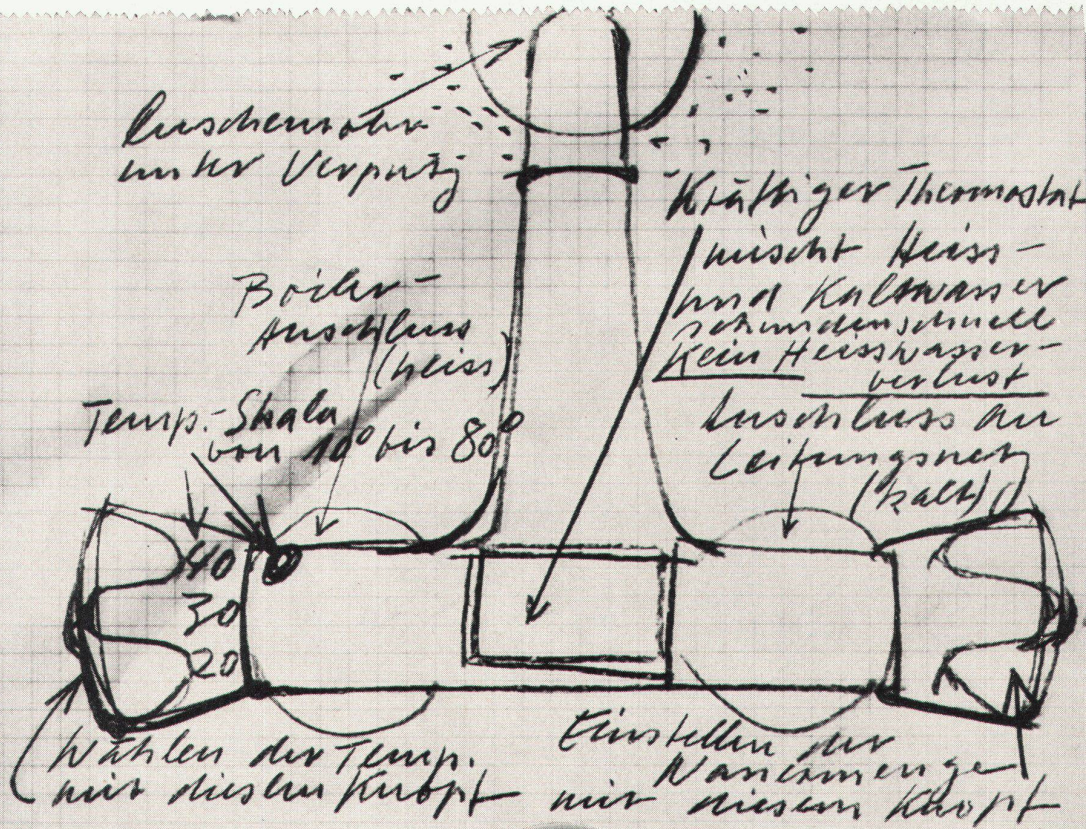 Duschenrohr
unter Verputz
Kräftiger Thermostat
mischt Heiss-
und Kaltwasser
sekundenschnell
Kein Heisswasser-
verlust
Boiler-
Anschluss
(heiss)
Temp.-Skala
von 10° bis 80°
Anschluss an
Leitungsnetz
(kalt)
40
30
20
Wählen der Temp.
mit diesem Knopf
Einstellen der
Wassermenge
mit diesem Knopf